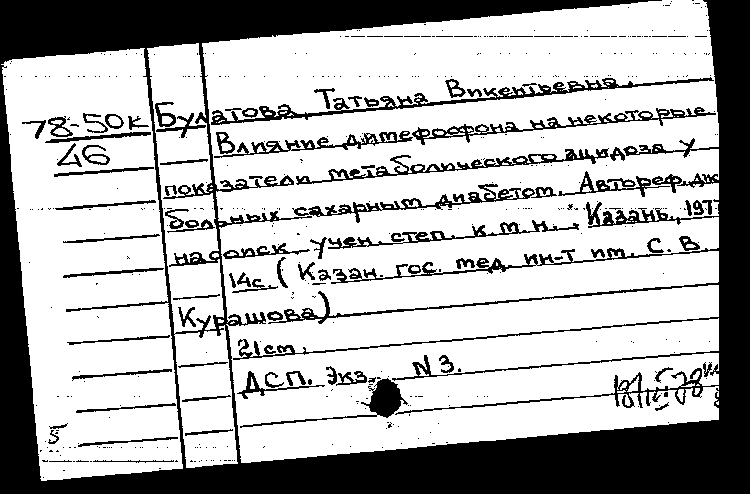 78-50к Булатова, Татьяна Викентьевна.
46 Влияние димефосфона на некоторые
показатели метаболического ацидоза у
больных сахарным диабетом. Автореф. дис
на соиск. учен. степ. к.м.н. Казань, 197
14с. (Казан. гос. мед. ин-т им. С. В.
Курашова).
21см.
ДСП. Экз. N 3.
5